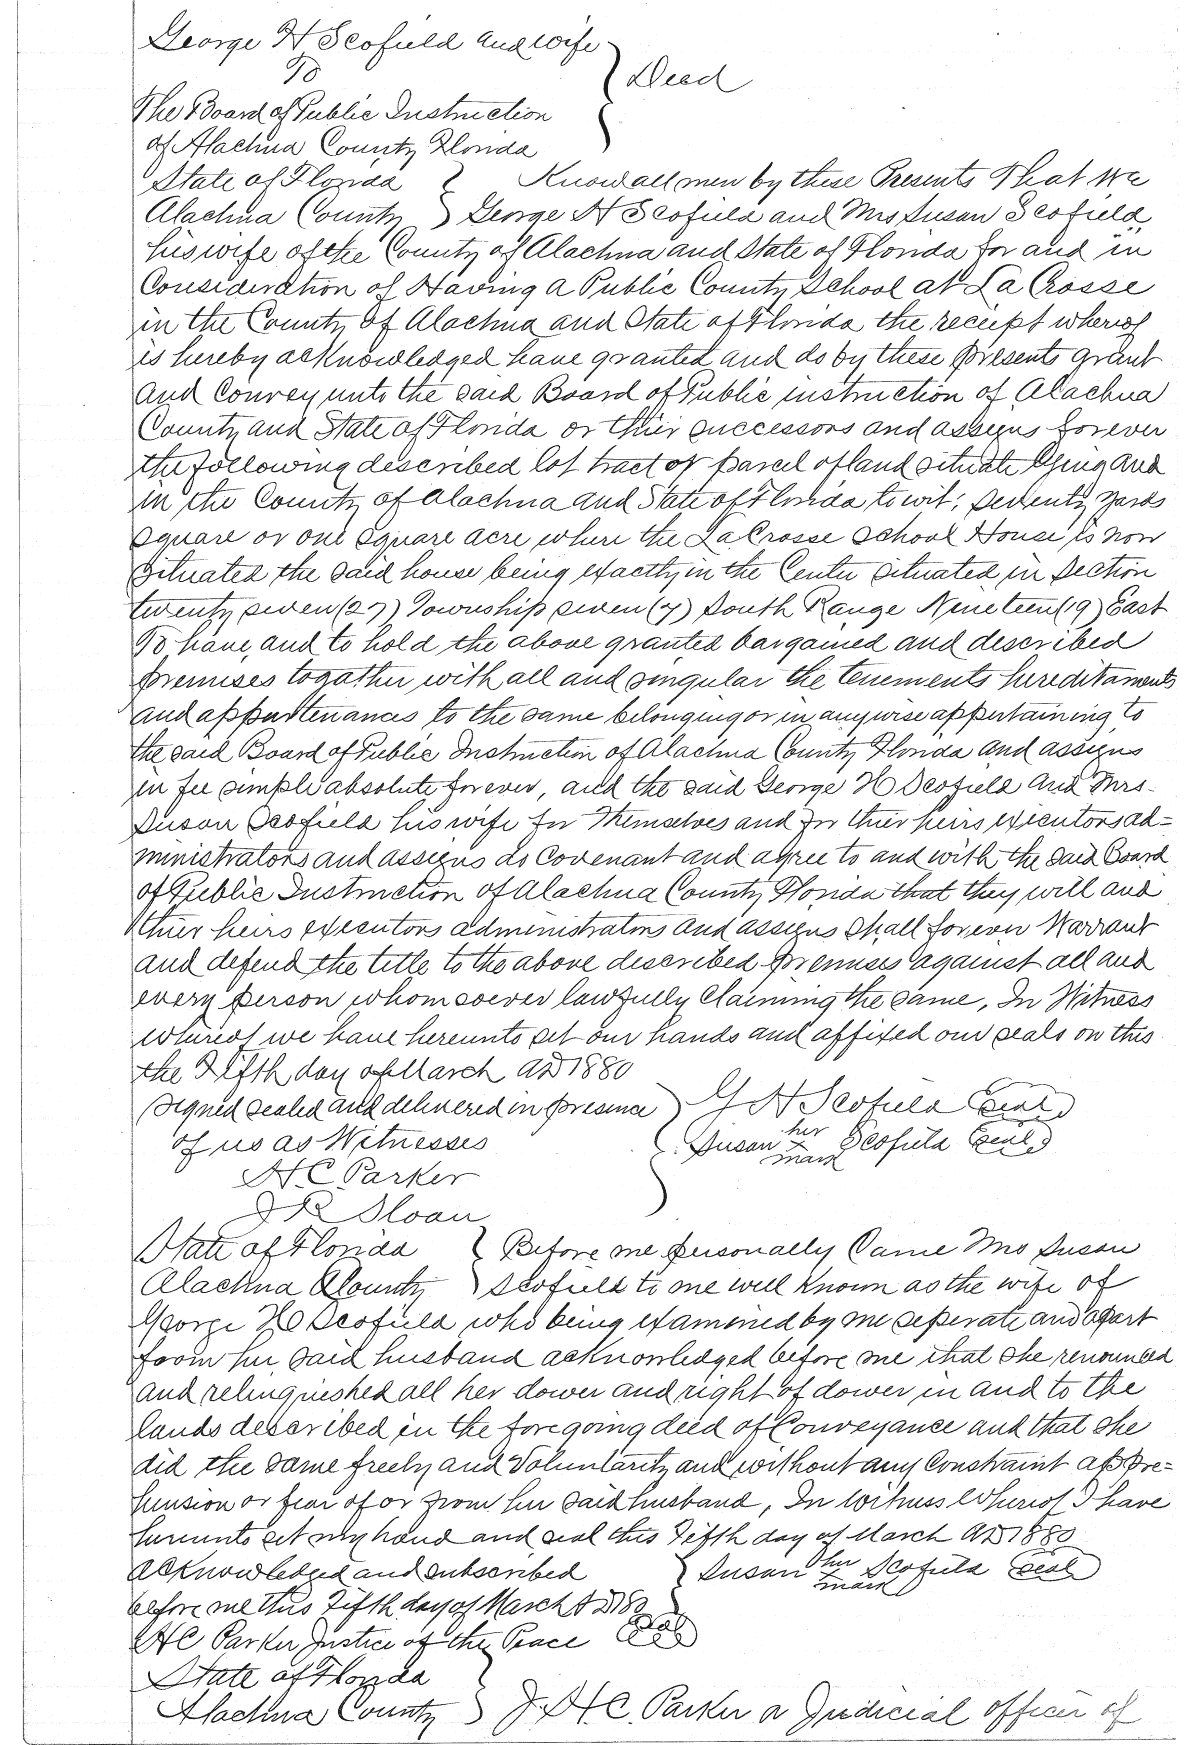 George H Scofield and wife
To
Deed
The Board of Public Instruction
of Alachua County Florida
State of Florida } Know all men by these Presents That We
Alachua County } George H Scofield and Mrs Susan Scofield
his wife of the County of Alachua and State of Florida for and in
Consideration of Having a Public County School at La Crosse
in the County of Alachua and State of Florida the receipt whereof
is hereby acknowledged have granted and do by these presents grant
and Convey unto the said Board of Public instruction of Alachua
County and State of Florida or thier successors and assigns forever
the following described lot tract or parcel of land situate lying and
in the County of Alachua and State of Florida to wit; seventy yards
square or one square acre where the La Crosse School House is now
situated the said house being exactly in the Center situated in Section
twenty seven (27) Township seven (7) South Range Nineteen (19) East
To have and to hold the above granted bargained and described
premises togather with all and singular the tenements hereditaments
and appurtenances to the same belonging or in anywise appertaining to
the said Board of Public Instruction of Alachua County Florida and assigns
in fee simple absolute forever, and the said George H Scofield and Mrs.
Susan Scofield his wife for Themselves and for thier heirs executors ad=
ministrators and assigns do Covenant and agree to and with the said Board
of Public Instruction of Alachua County Florida that they will and
thier heirs executors administrators and assigns shall forever Warrant
and defend the title to the above described premises against all and
every person whomsoever lawfully Claiming the same, In Witness
whereof we have hereunto set our hands and affixed our seals on this
the Fifth day of March AD 1880
Signed sealed and delivered in presence } G H Scofield (Seal)
of us as Witnesses } Susan her x mark Scofield (Seal)
H. C. Parker
J R Sloan
State of Florida } Before me personally Came Mrs Susan
Alachua County } Scofield to me well Known as the wife of
George H Scofield who being examined by me seperate and apart
from her said husband acknowledged before me that she renounced
and relinquished all her dower and right of dower in and to the
lands described in the foregoing deed of Conveyance and that she
did the same freely and Voluntarily and without any Constraint appre=
hension or fear of or from her said husband, In Witness Whereof I have
hereunto set my hand and seal this Fifth day of March AD 1880
acknowledged and subscribed } Susan her x mark Scofield (Seal)
before me this Fifth day of March AD 180
H C Parker Justice of the Peace (Seal)
State of Florida
Alachua County } I. H. C. Parker a Judicial officer of